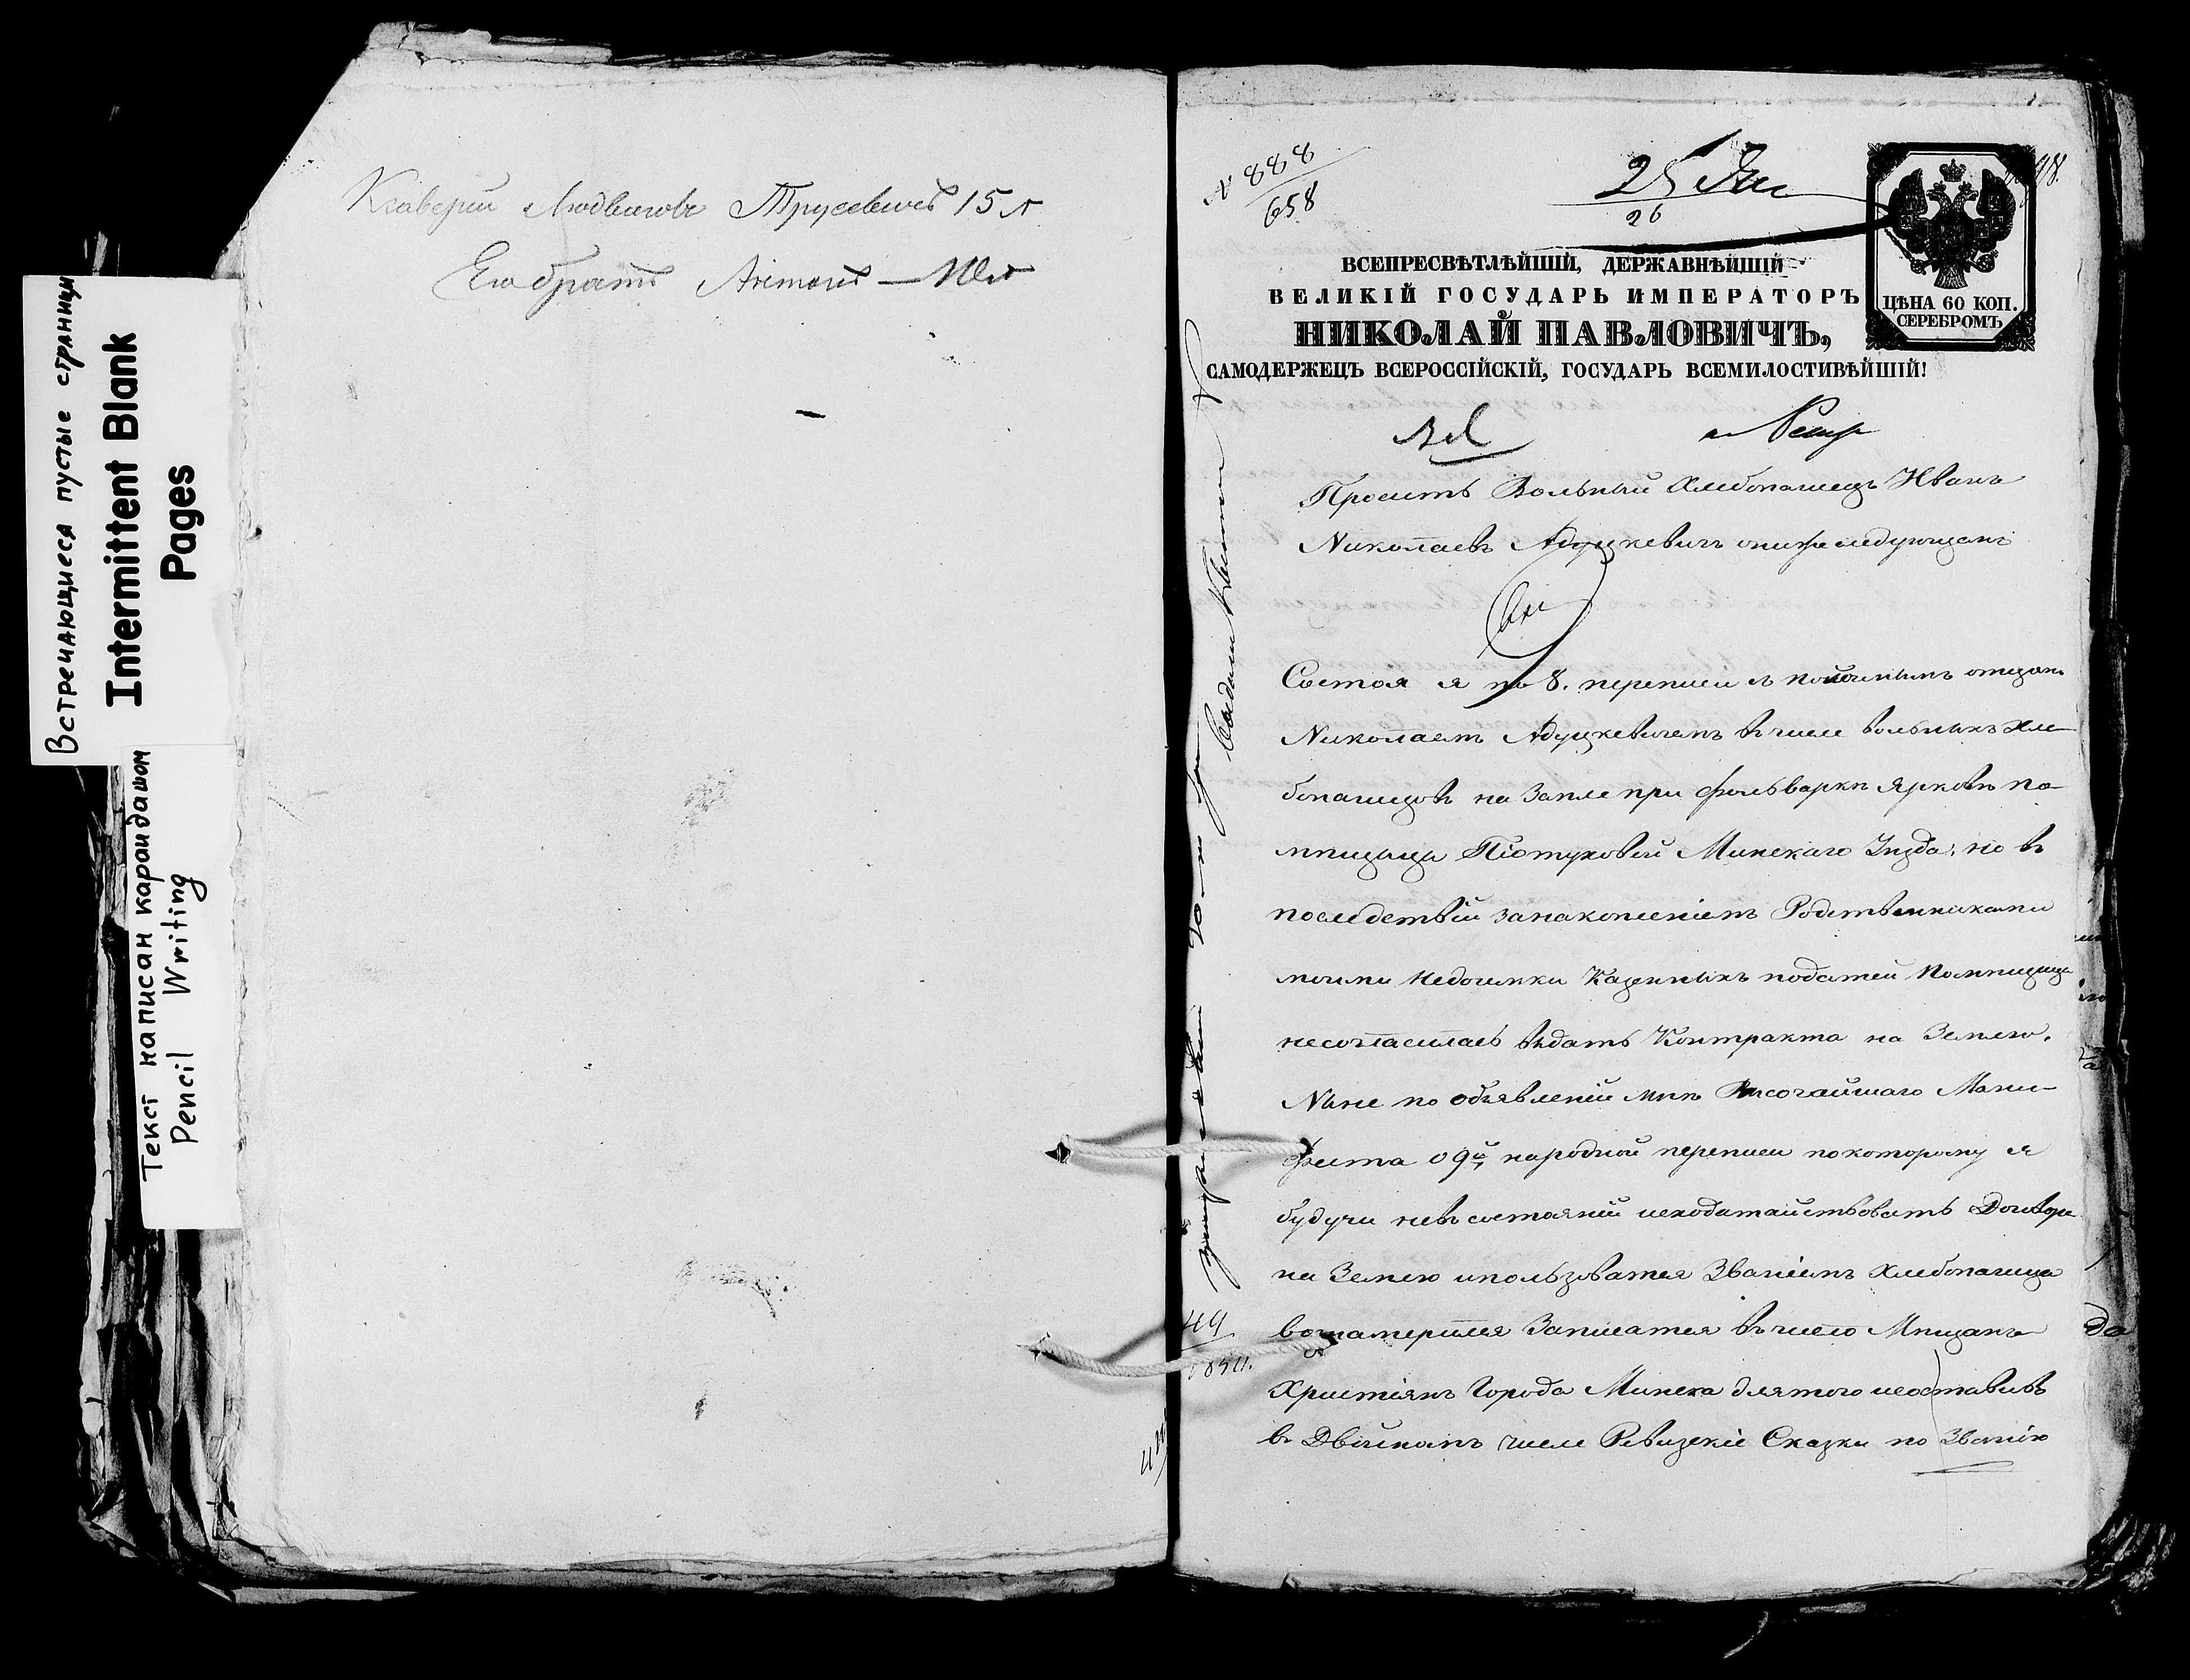 Встречающиеся пустые страницы
Intermittent Blank
Pages
Текст написан карандашом
Pencil Writing
Ксаверий Людвиговъ Трусевичъ 15 л
Его братъ Антонъ
№ 888
658
25
26
ЦѢНА 60 КОП.
СЕРЕБРОМЪ
ВСЕПРЕСВѢТЛѢЙШІЙ, ДЕРЖАВНѢЙШІЙ
ВЕЛИКІЙ ГОСУДАРЬ ИМПЕРАТОРЪ
НИКОЛАЙ ПАВЛОВИЧЪ,
САМОДЕРЖЕЦЪ ВСЕРОССІЙСКІЙ, ГОСУДАРЬ ВСЕМИЛОСТИВѢЙШІЙ!
Проситъ Вольный Хлебопашецъ Иванъ
Николаевъ Адуцкевичъ онижеследующемъ
Состоя я по 8. переписи съ покойнымъ отцомъ
Николаемъ Адуцкевичемъ въ числе вольныхъ хле-
бопашцовъ на Земле при фольварке Ярковѣ по-
мѣщицы Піотуховой Минскаго Уѣзда; но въ
последствіи занакопленіемъ Родственниками
моими недоимки Казенныхъ податей Помѣщица
несогласилась выдать Контракта на Землю.
Ныне по объявленіи мнѣ Высочайшаго Мани-
феста о 9й народной переписи покоторому я
будучи невъ состояніи исходатайствовать Договора
на Землю ипользоватся Званіемъ Хлебопашца
вознамерился Записатся въ число Мѣщанъ
Христіянъ Города Минска длятого исоставивъ
въ Двойномъ числе Ревизскіе Сказки по Званію